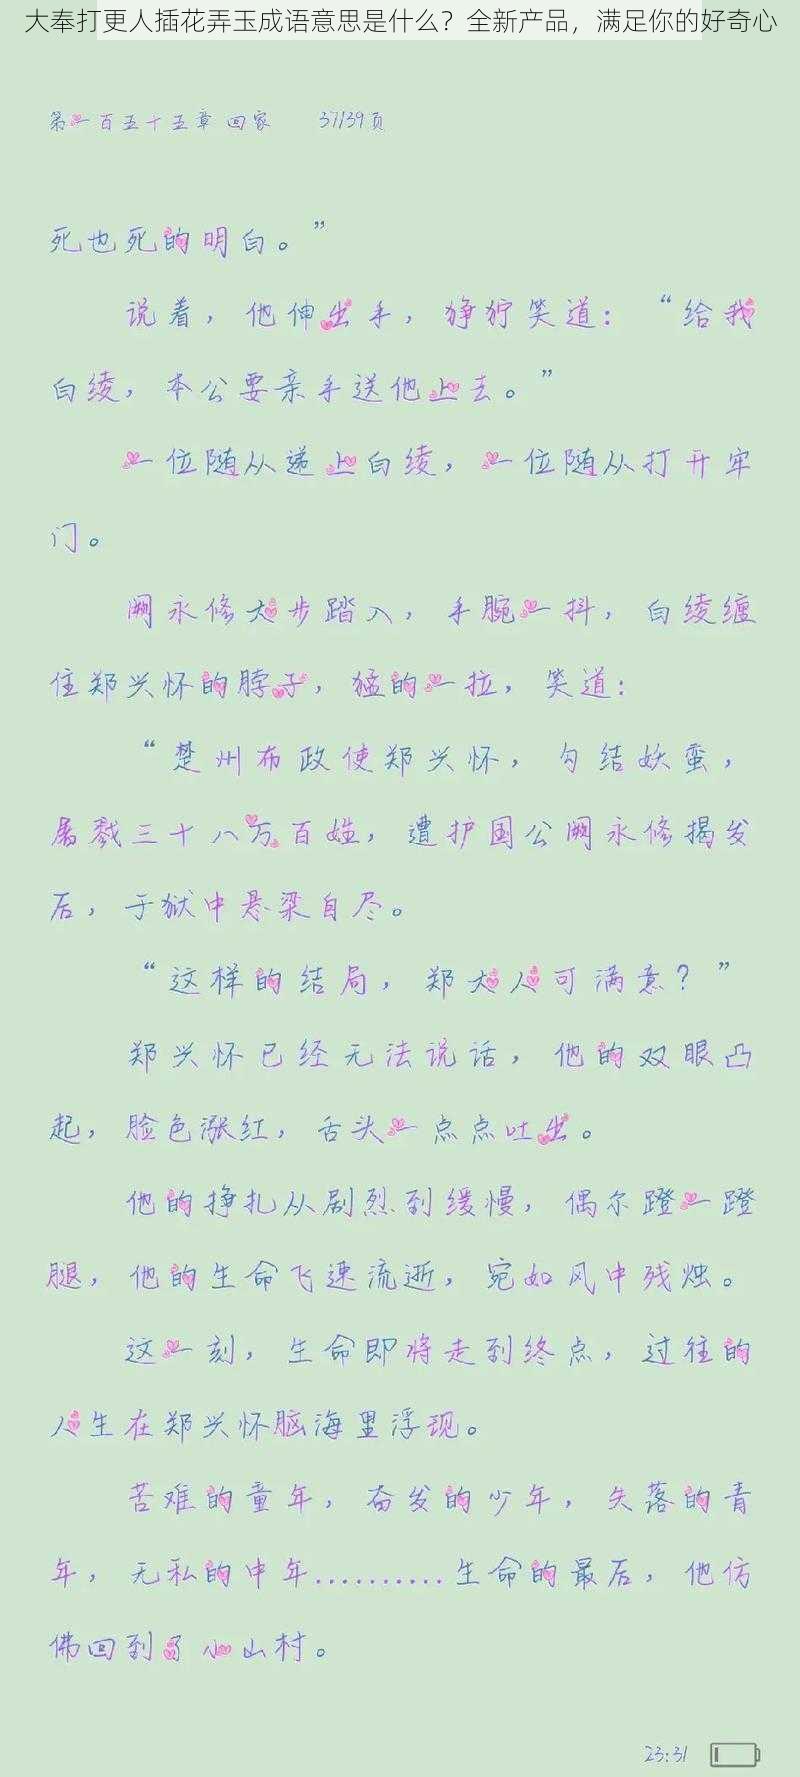 大奉打更人插花弄玉成语意思是什么？全新产品，满足你的好奇心
第一百五十五章 回家 37/39页
死也死的明白。”
说着，他伸出手，狰狞笑道：“给我
白绫，本公要亲手送他上去。”
一位随从递上白绫，一位随从打开牢
门。
阙永修大步踏入，手腕一抖，白绫缠
住郑兴怀的脖子，猛的一拉，笑道：
“楚州布政使郑兴怀，勾结妖蛮，
屠戮三十八万百姓，遭护国公阙永修揭发
后，于狱中悬梁自尽。
“这样的结局，郑大人可满意？”
郑兴怀已经无法说话，他的双眼凸
起，脸色涨红，舌头一点点吐出。
他的挣扎从剧烈到缓慢，偶尔蹬一蹬
腿，他的生命飞速流逝，宛如风中残烛。
这一刻，生命即将走到终点，过往的
人生在郑兴怀脑海里浮现。
苦难的童年，奋发的少年，失落的青
年，无私的中年..........生命的最后，他仿
佛回到了小山村。
23:31